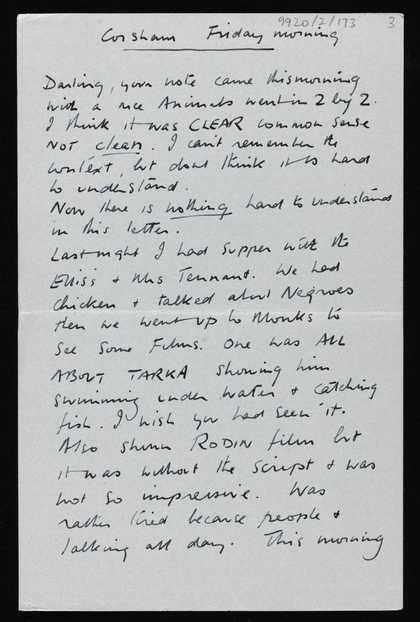 9920/2/173 3
Corsham Friday morning
Darling, your note came this morning
with a nice Animals went in 2 by 2.
I think it was CLEAR common sense
NOT clean. I can't remember the
context, but don't think it is hard
to understand.
Now there is nothing hard to understand
in this letter.
Last night I had supper with the
Ellis's + Mrs Tennant. We had
chicken + talked about Negroes
then we went up to Monks to
see some Films. One was ALL
ABOUT TARKA showing him
swimming under water + catching
fish. I wish you had seen it.
Also shown RODIN film but
it was without the script + was
not so impressive. Was
rather tired because people +
talking all day. This morning